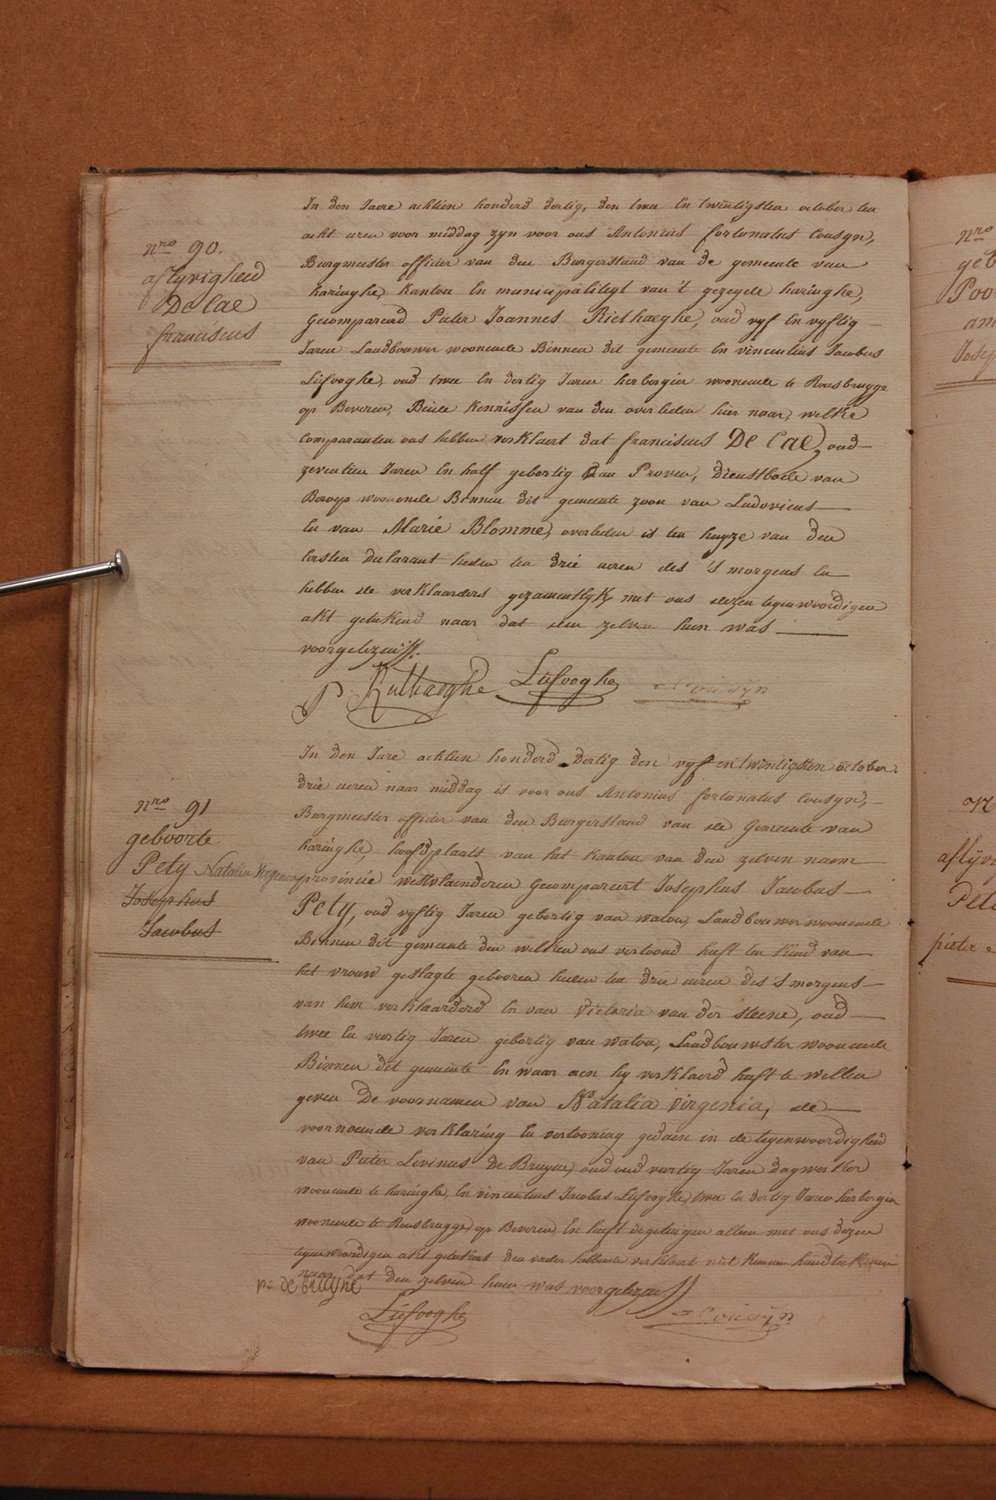 nro 90.
aflyvigheid
De Cae
franciscus
In den Jaere achtien honderd dertig, den twee En twintigsten october ten
acht uren voor middag zyn voor ons Antonius fortunatus Cousyn,
Burgmeester officier van den Burgerstand van de gemeente van
haringhe, Kanton En municipaliteyt van 't gezegde haringhe,
Gecompareerd Pieter Joannes Riethaeghe, oud vyf En vyftig
Jaren Landbouwer woonende Binnen dit gemeente En vincentius Jacobus
Liefooghe, oud twee En dertig Jaren herbergier woonende te Rousbrugge
op Beveren, Beide Kennissen van den overleden hier naer, welke
comparanten ons hebben verklaert dat franciscus De Cae, oud
zeventien Jaren En half gebortig van Proven, Dienstbode van
Beroep woonende Binnen dit gemeente zoon van Ludovicus
En van Marie Blomme, overleden is ten huyze van den
Eersten declarant heden ten drie uren des 's morgens En
hebben de verklaerders gezamentlyk met ons dezen tegenwoordigen
akt getekend naer dat den zelven hun was
voorgelezen
P Riethaeghe Liefooghe A Cousyn
nro 91
geboorte
Pety Natalia Virginia
Josephus
Jacobus
In den Jare achtien honderd dertig den vyf en twintigsten october
drie uren naer middag is voor ons Antonius fortunatus Cousyn,
Burgmeester officier van den Burgerstand van de Gemeente van
haringhe, hoofdplaets van het Kanton van den zelven naem
provincie westvlaenderen Gecompareert Josephus Jacobus
Pety, oud vyftig Jaren gebortig van watou, Landbouwer woonende
Binnen dit gemeente den welken ons vertoond heeft een Kind van
het vrouw geslagte gebooren heden ten drie uren des 's morgens
van hem verklaerderd En van Victoria van der steene, oud
twee En veertig Jaren gebortig van watou, Landbouwster woonende
Binnen dit gemeente En waer aen hy verklaerd heeft te willen
geven De voornamen van Natalia virgenia, de
voornoemde verklaring En vertooning gedaen in de tegenwoordigheid
van Pieter Livinus De Bruyne, oud veertig Jaren dagwerker
woonende te haringhe, En vincentius Jacobus Liefooghe, twee En dertig Jaren herbergier
woonende te Rousbrugge op Beveren En heeft de getuigen alleen met ons dezen
tegenwoordigen akt getekent den vader hebbende verklaert niet Kunnen handteekenen
naer dat den zelven hun was voorgelezen
p: de bruyne
Liefooghe A Cousyn
nro
geb
Poo
am
Josep
aflyv
Pete
pieter